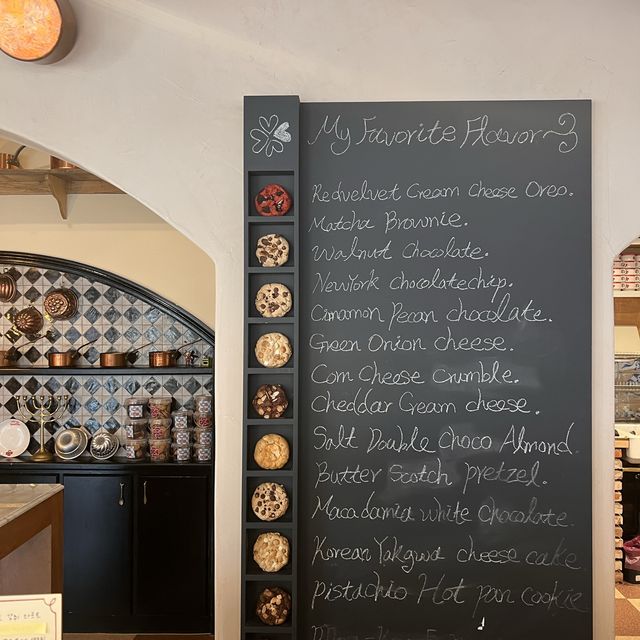 My Favorite Flavor~
Redvelvet Cream Cheese Oreo.
Matcha Brownie.
Walnut Chocolate.
NewYork chocolatechip.
Cinnamon Pecan chocolate.
Green Onion cheese.
Corn Cheese Crumble.
Cheddar Cream cheese.
Salt Double Choco Almond.
Butter Scotch pretzel.
Macadamia white Chocolate.
Korean Yakgwa cheese cake
Pistachio Hot pan cookie